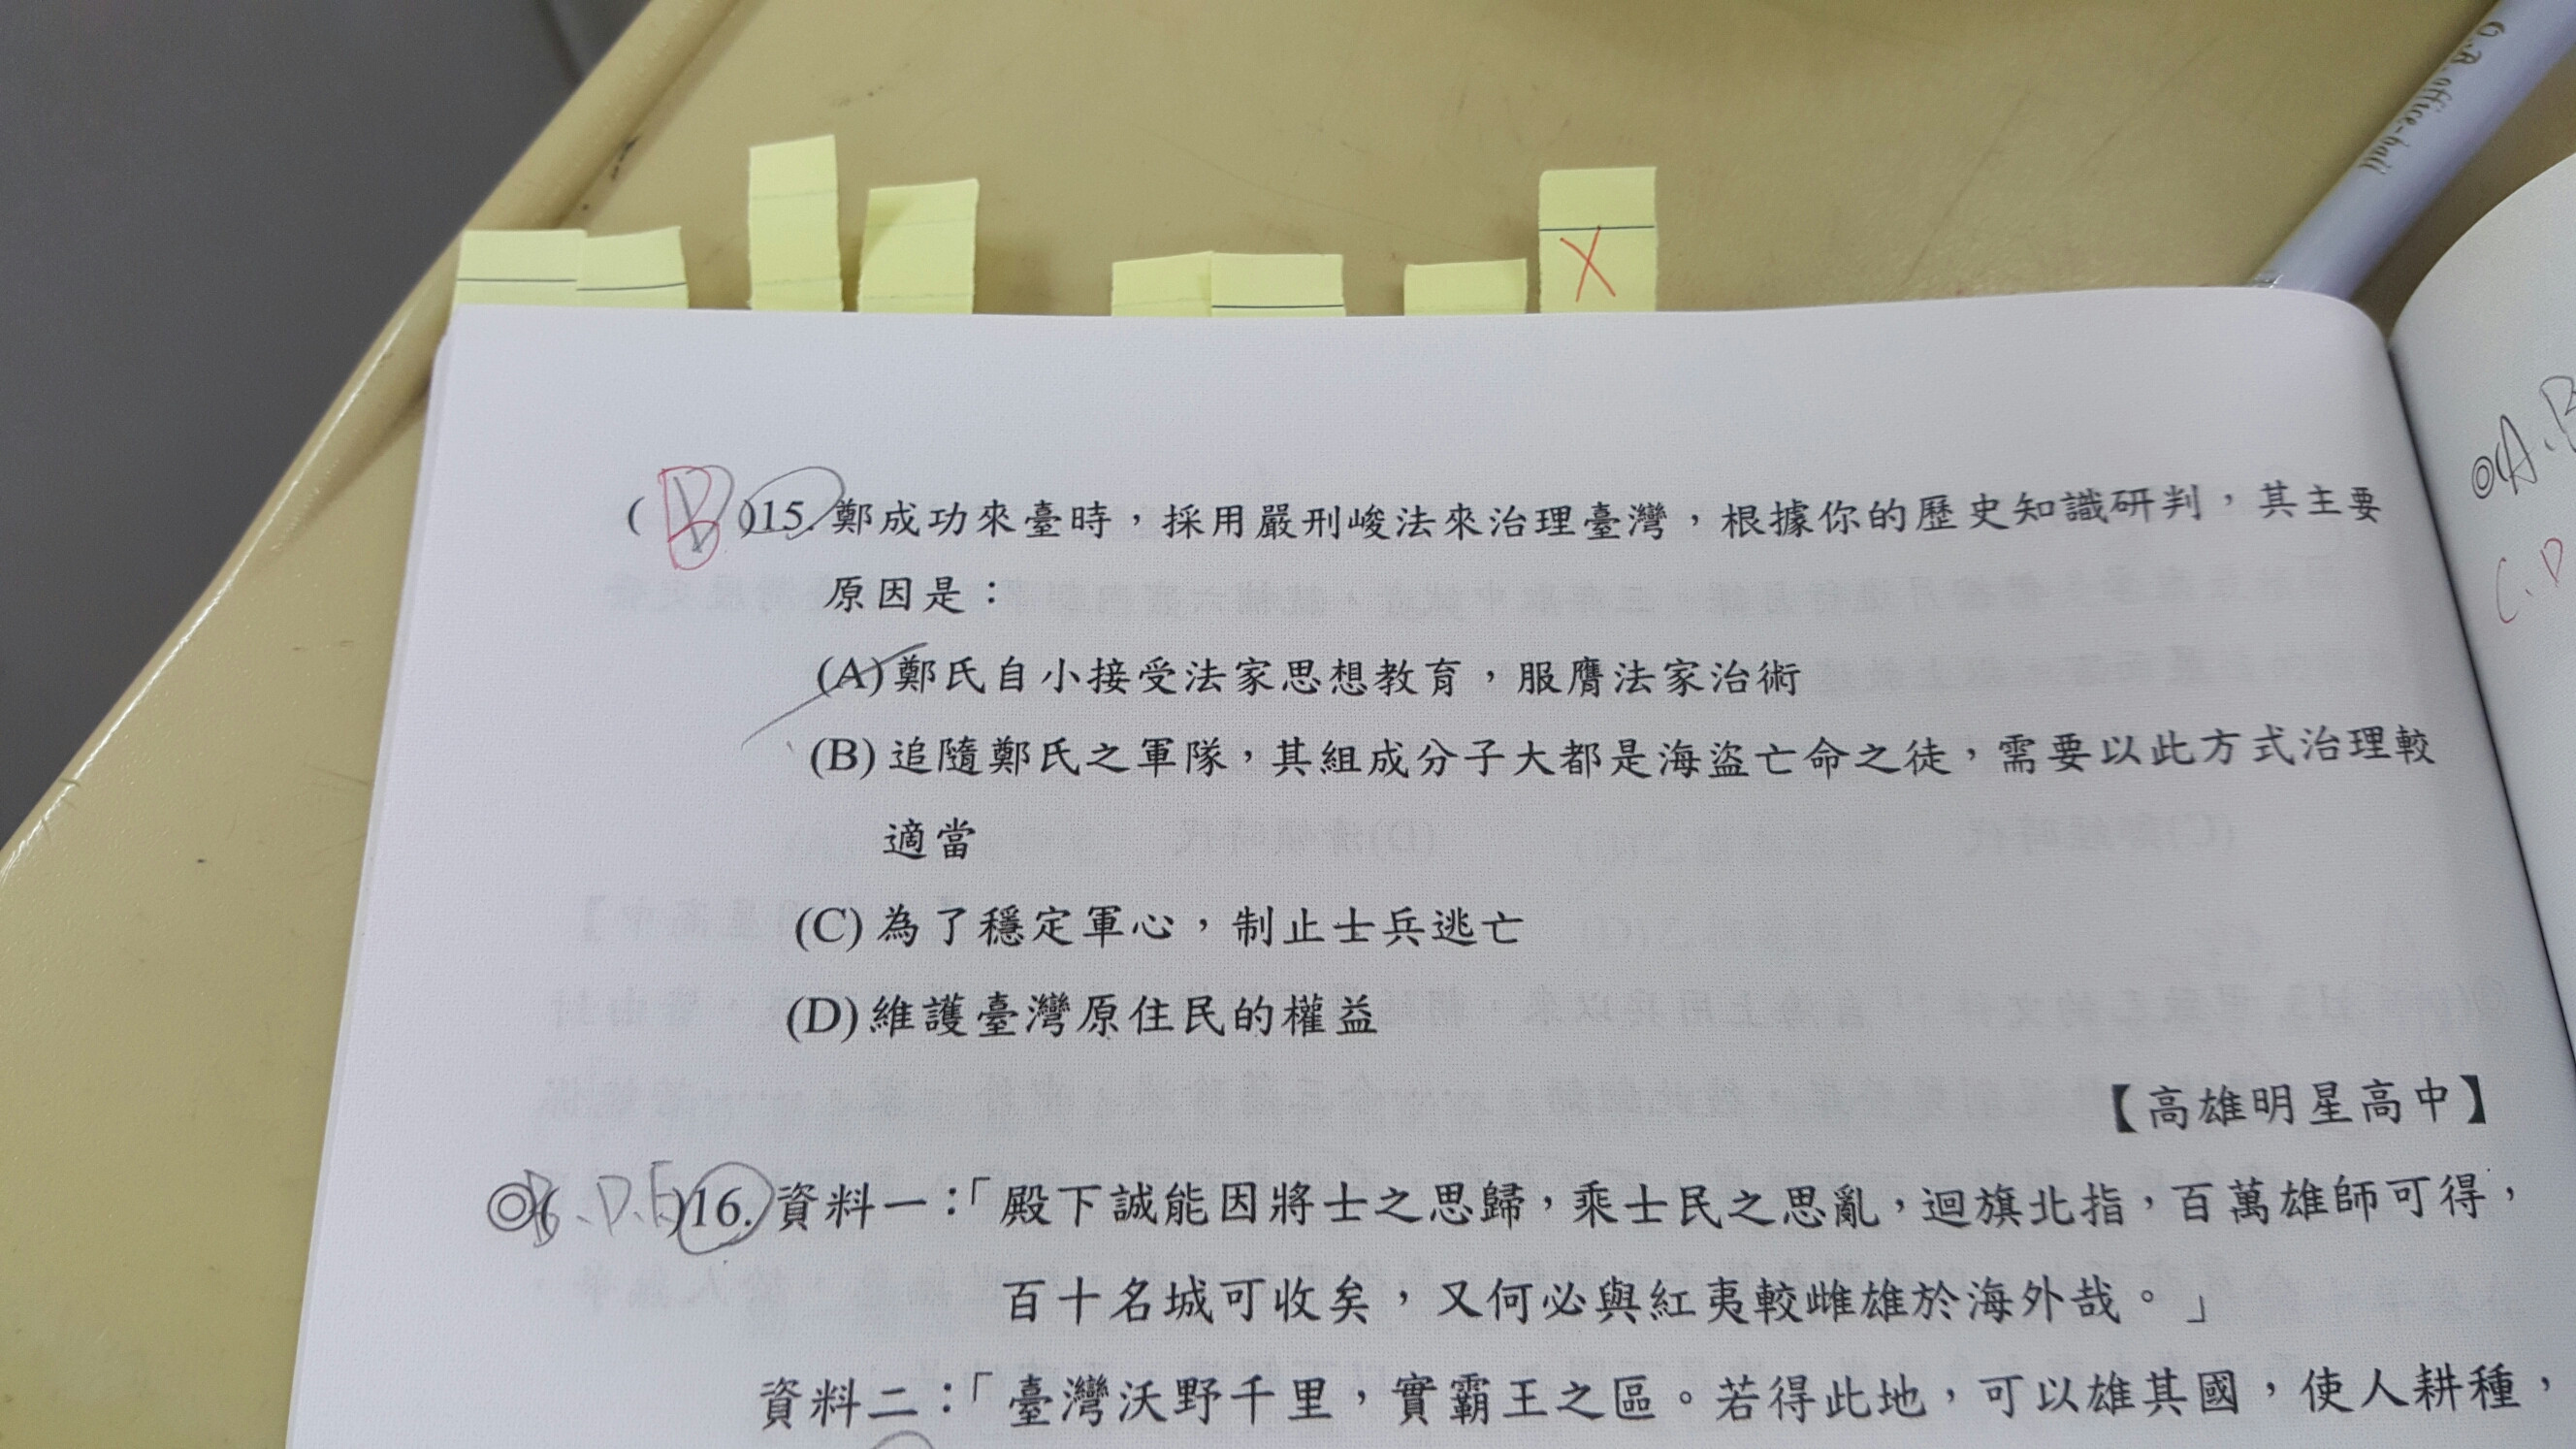 G.R. office-ball
X
(B)15. 鄭成功來臺時，採用嚴刑峻法來治理臺灣，根據你的歷史知識研判，其主要
原因是：
(A)鄭氏自小接受法家思想教育，服膺法家治術
(B)追隨鄭氏之軍隊，其組成分子大都是海盜亡命之徒，需要以此方式治理較
適當
(C)為了穩定軍心，制止士兵逃亡
(D)維護臺灣原住民的權益
【高雄明星高中】
◎(B、D、E)16. 資料一：「殿下誠能因將士之思歸，乘士民之思亂，迴旗北指，百萬雄師可得，
百十名城可收矣，又何必與紅夷較雌雄於海外哉。」
資料二：「臺灣沃野千里，實霸王之區。若得此地，可以雄其國，使人耕種，
◎(A、B
C、D